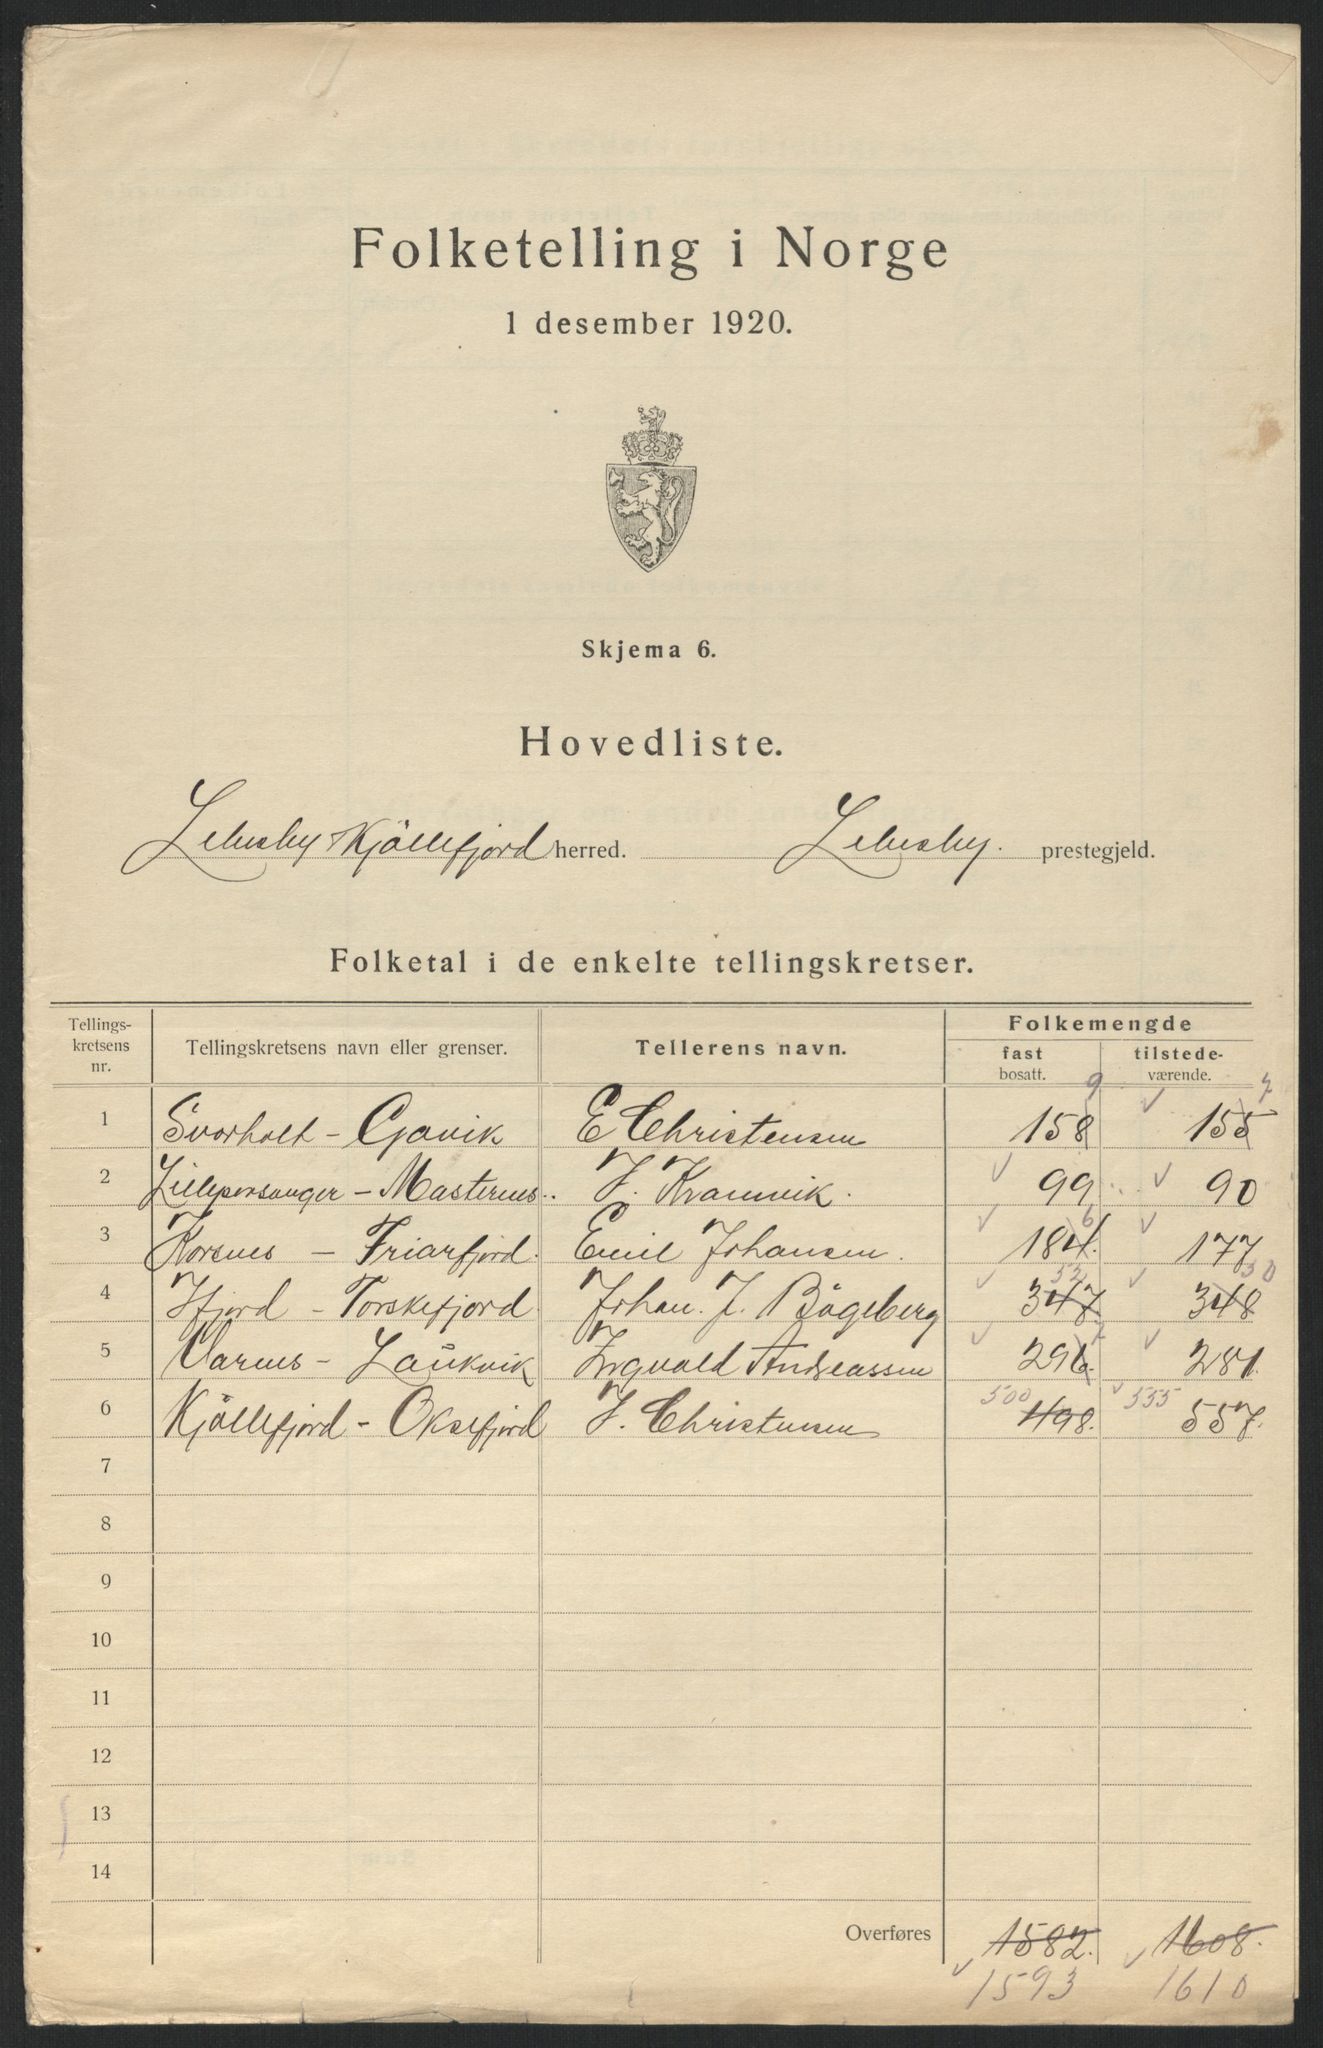 Folketelling i Norge
1 desember 1920.
Skjema 6.
Hovedliste.
Lebesby Kjöllefjord herred. Lebesby. prestegjeld.
Folketal i de enkelte tellingskretser.
Tellings-kretsens nr. Tellingskretsens navn eller grenser. Tellerens navn. Folkemengde
fast bosatt. tilstede-værende.
9 7
1 Svorholt - Gjavik E Christensen 158 155
2 Lilleporsanger - Masternes J. Kramvik. 99 90
6
3 Korsnes - Friarfjord. Emil Johansen. 184. 177
52 50
4 Ifjord - Torskefjord Johan. J. Bögeberg 347 348
7
5 Varnes - Laukvik Ingvald Andreassen 296. 281.
500 555
6 Kjöllefjord - Oksefjord J. Christensen 498. 557.
7
8
9
10
11
12
13
14
Overføres 1582. 1608.
1593 1610